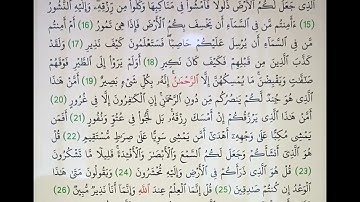 الَّذِى جَعَلَ لَكُمُ الْاَرْضَ ذَلُولًا فَامْشُوا فِى مَنَاكِبِهَا وَكُلُوا مِنْ رِزْقِهٖ وَاِلَيْهِ النُّشُورُ
(15) ءَاَمِنْتُمْ مَّنْ فِى السَّمَآءِ اَنْ يَخْسِفَ بِكُمُ الْاَرْضَ فَاِذَا هِىَ تَمُورُ (16) اَمْ اَمِنْتُمْ
مَّنْ فِى السَّمَآءِ اَنْ يُرْسِلَ عَلَيْكُمْ حَاصِبًا فَسَتَعْلَمُونَ كَيْفَ نَذِيرِ (17) وَلَقَدْ
كَذَّبَ الَّذِينَ مِنْ قَبْلِهِمْ فَكَيْفَ كَانَ نَكِيرِ (18) اَوَلَمْ يَرَوْا اِلَى الطَّيْرِ فَوْقَهُمْ
صٰٓفّٰتٍ وَيَقْبِضْنَ مَا يُمْسِكُهُنَّ اِلَّا الرَّحْمٰنُ اِنَّهُ بِكُلِّ شَىْءٍ بَصِيرٌ (19) اَمَّنْ هٰذَا
الَّذِى هُوَ جُنْدٌ لَكُمْ يَنْصُرُكُمْ مِنْ دُونِ الرَّحْمٰنِ اِنِ الْكٰفِرُونَ اِلَّا فِى غُرُورٍ (20)
اَمَّنْ هٰذَا الَّذِى يَرْزُقُكُمْ اِنْ اَمْسَكَ رِزْقَهُ بَلْ لَجُّوا فِى عُتُوٍّ وَنُفُورٍ (21) اَفَمَنْ
يَمْشِى مُكِبًّا عَلٰى وَجْهِهٖ اَهْدٰى اَمَّنْ يَمْشِى سَوِيًّا عَلٰى صِرَاطٍ مُسْتَقِيمٍ (22)
قُلْ هُوَ الَّذِى اَنْشَاَكُمْ وَجَعَلَ لَكُمُ السَّمْعَ وَالْاَبْصَارَ وَالْاَفْـِٕدَةَ قَلِيلًا مَا تَشْكُرُونَ
(23) قُلْ هُوَ الَّذِى ذَرَاَكُمْ فِى الْاَرْضِ وَاِلَيْهِ تُحْشَرُونَ (24) وَيَقُولُونَ مَتٰى هٰذَا
الْوَعْدُ اِنْ كُنْتُمْ صٰدِقِينَ (25) قُلْ اِنَّمَا الْعِلْمُ عِنْدَ اللّٰهِ وَاِنَّمَا اَنَا نَذِيرٌ مُبِينٌ (26)